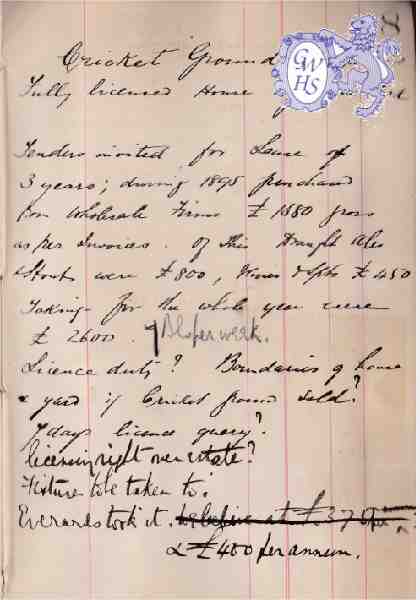 Cricket Ground
Fully licensed House
GWHS
Tenders invited for Lease of
3 years; during 1895 purchased
from Wholesale Firms £1880 gross
as per Invoices. Of this Draught Ales
& Stouts were £800, Wines & Spts £450
Takings for the whole year were
£2600. per week.
Licence duty? Boundaries of house
& yard if Cricket ground sold?
7 days licence query?
licensing right over estate?
Fixtures to be taken to.
Everards took it. to believe at £370 per
£400 per annum.